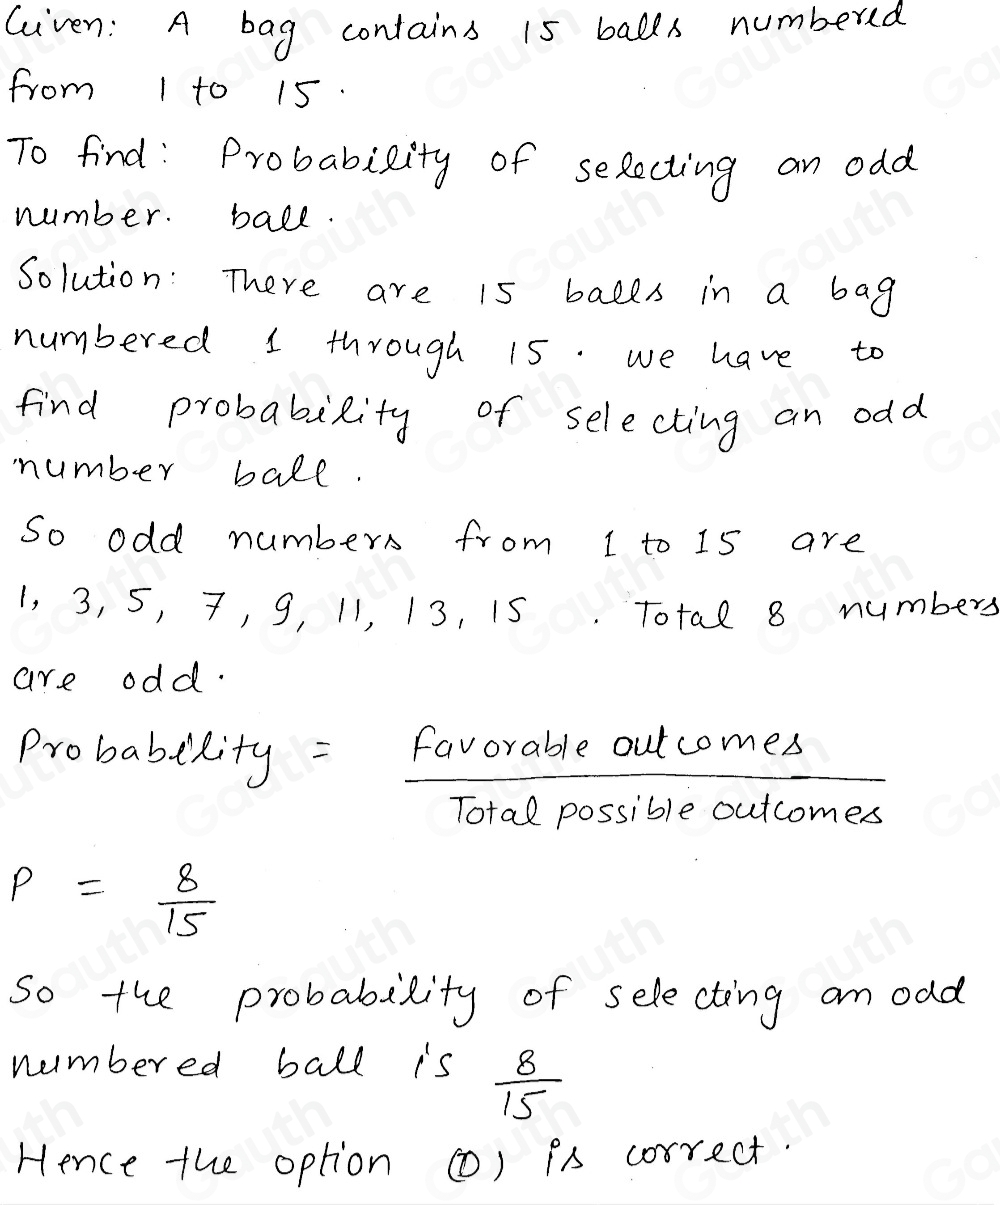 Given: A bag contains 15 balls numbered
from 1 to 15.
To find: Probability of selecting an odd
number. ball.
Solution: There are 15 balls in a bag
numbered 1 through 15. we have to
find probability of selecting an odd
number ball.
So odd numbers from 1 to 15 are
1, 3, 5, 7, 9, 11, 13, 15. Total 8 numbers
are odd.
Probability = favorable outcomes
Total possible outcomes
P = 8
15
So the probability of selecting an odd
numbered ball is 8
15
Hence the option (D) is correct.